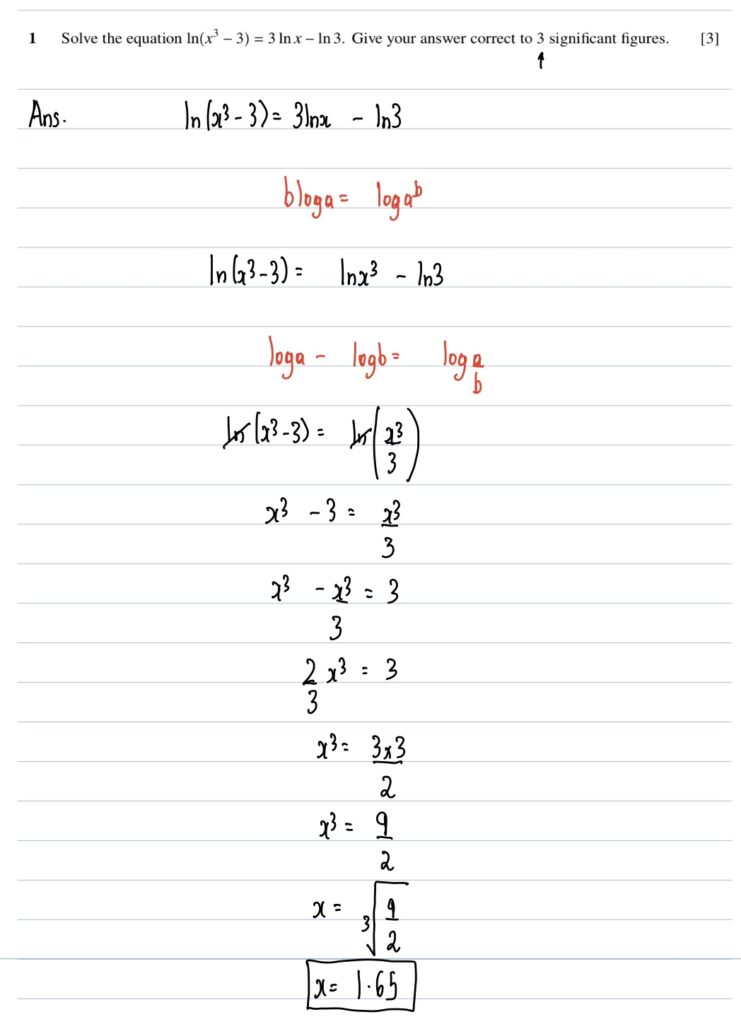 1 Solve the equation ln(x³ − 3) = 3 ln x − ln 3. Give your answer correct to 3 significant figures. [3]
Ans. ln(x³ - 3) = 3lnx - ln3
bloga = loga^b
ln(x³-3) = lnx³ - ln3
loga - logb = log a/b
ln(x³-3) = ln(x³/3)
x³ - 3 = x³/3
x³ - x³/3 = 3
2/3 x³ = 3
x³ = 3x3/2
x³ = 9/2
x = ³√(9/2)
x = 1.65